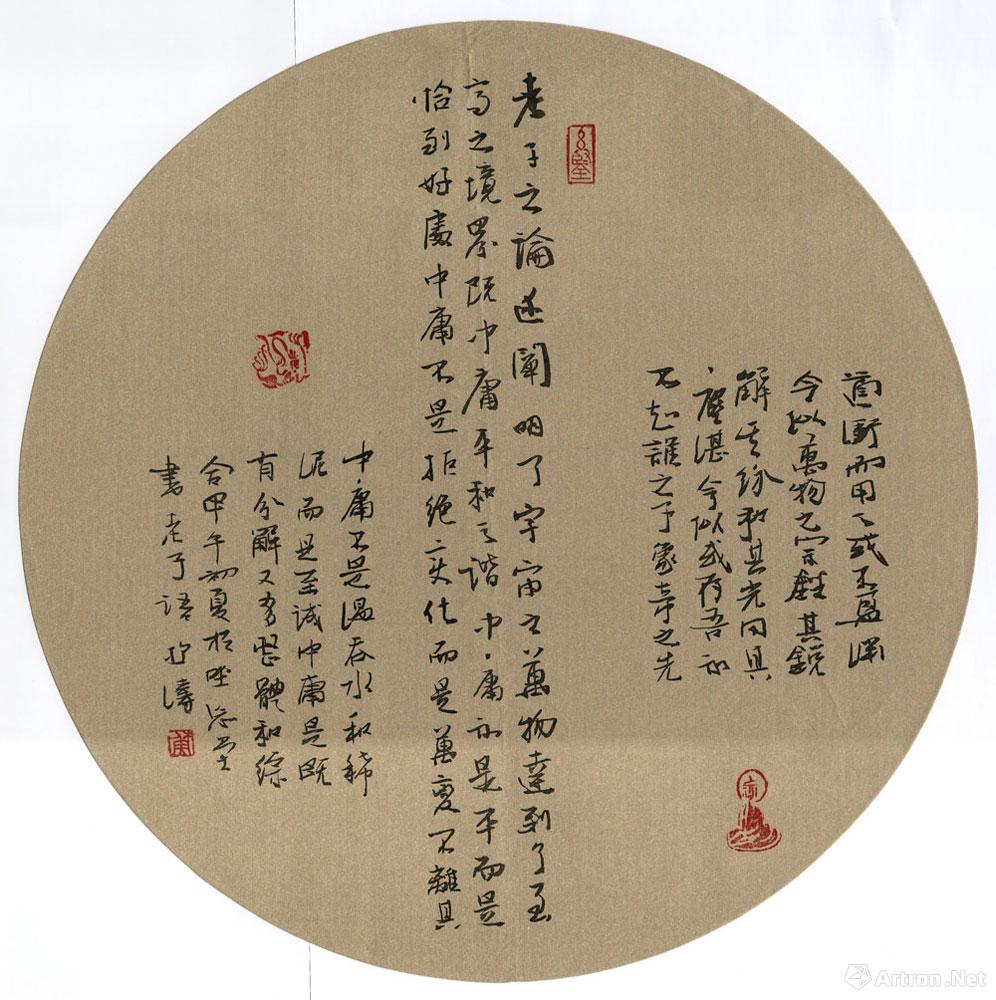 道沖而用之或不盈渊
兮似萬物之宗銼其銳
解其紛和其光同其
塵湛兮似或存吾不
知誰之子象帝之先
老子之論述闡明了宇宙之萬物達到了至
高之境界既中庸平和之諧中庸不是平而是
恰到好處中庸不是拒絕变化而是萬變不離其
中庸不是温吞水和稀
泥而且至誠中庸是既
有分解又有整體和綜
合甲午初夏於
書老子語
Artron.Net